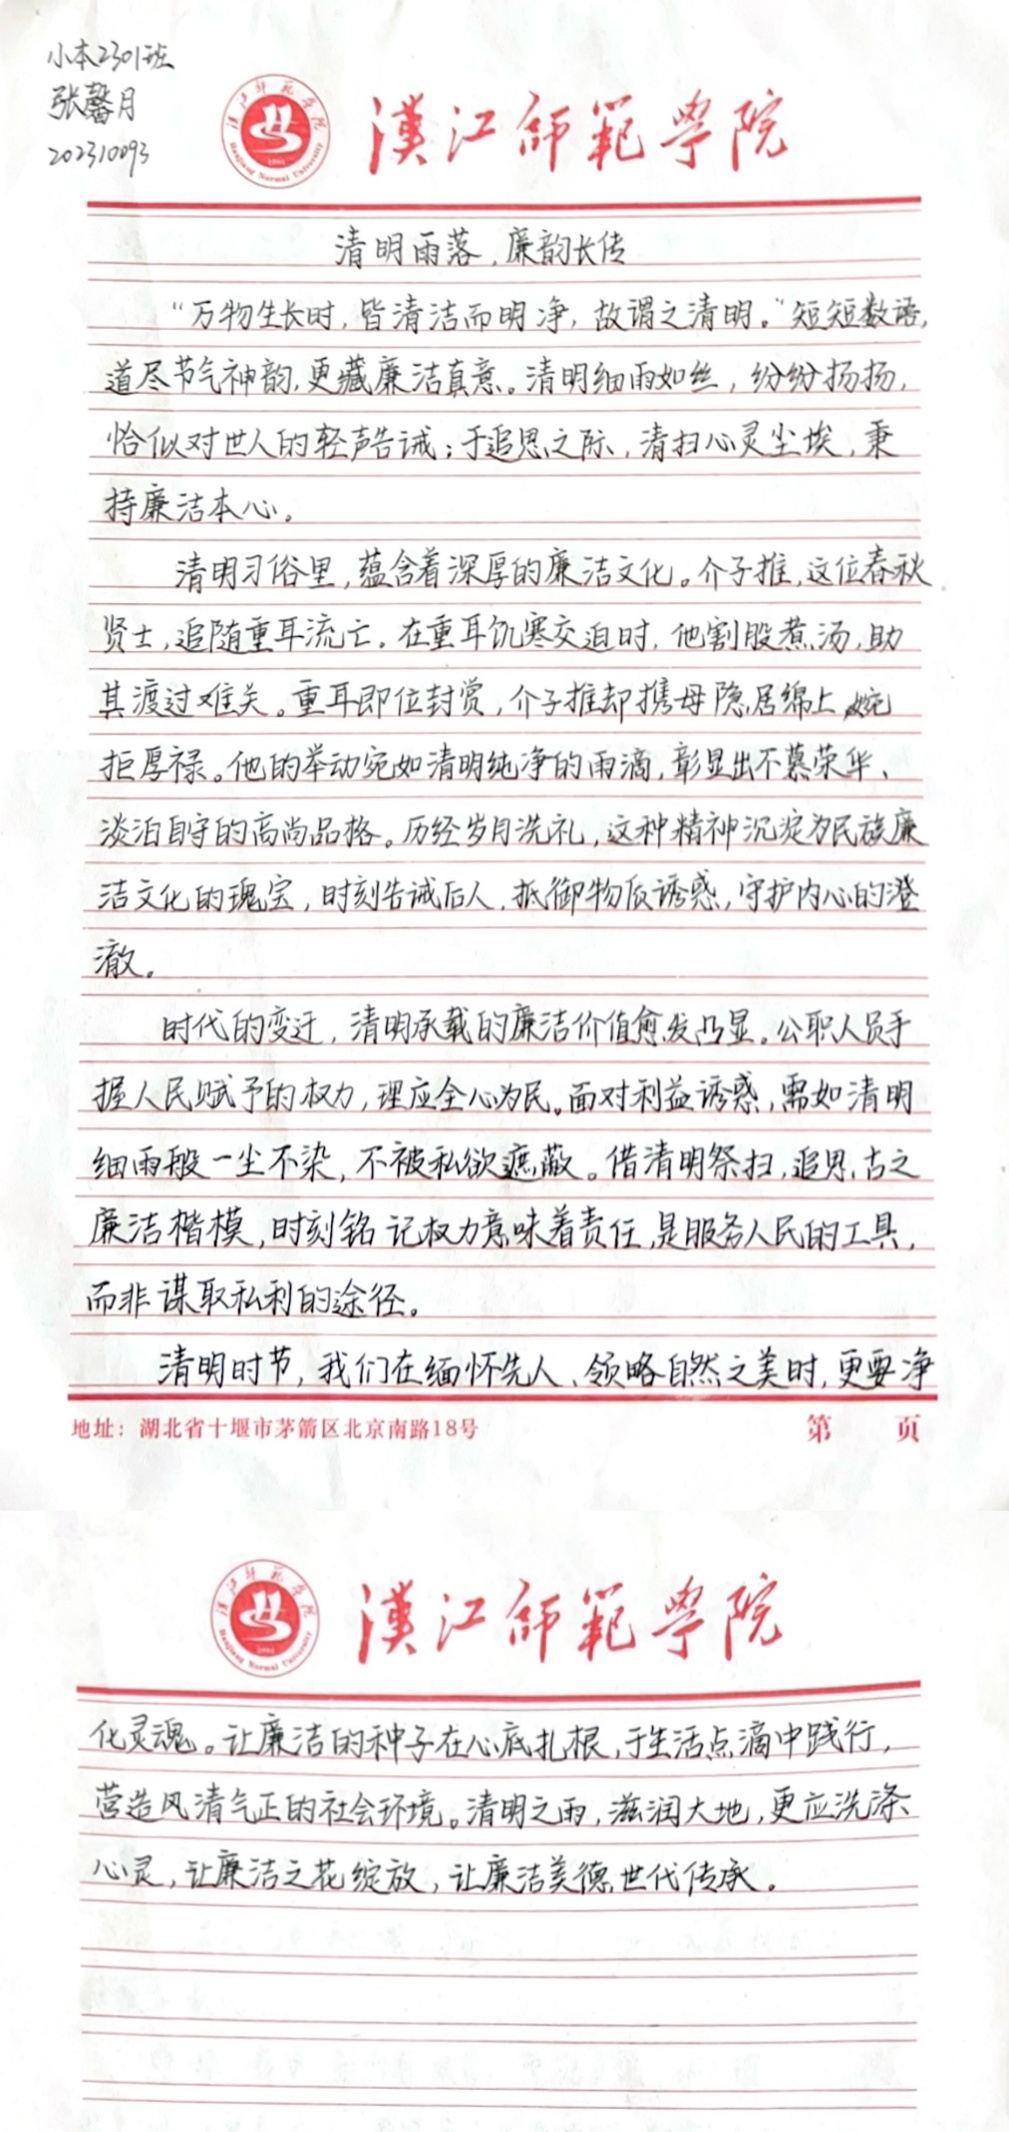 小本2301班
张馨月
202310093
漢江師範學院
清明雨落，廉韵长传
“万物生长时，皆清洁而明净，故谓之清明。”短短数语，
道尽节气神韵，更藏廉洁真意。清明细雨如丝，纷纷扬扬，
恰似对世人的轻声告诫；于追思之际，清扫心灵尘埃，秉
持廉洁本心。
清明习俗里，蕴含着深厚的廉洁文化。介子推，这位春秋
贤士，追随重耳流亡。在重耳饥寒交迫时，他割股煮汤，助
其渡过难关。重耳即位封赏，介子推却携母隐居绵上，婉
拒厚禄。他的举动宛如清明纯净的雨滴，彰显出不慕荣华、
淡泊自守的高尚品格。历经岁月洗礼，这种精神沉淀为民族廉
洁文化的瑰宝，时刻告诫后人，抵御物质诱惑，守护内心的澄
澈。
时代的变迁，清明承载的廉洁价值愈发凸显。公职人员手
握人民赋予的权力，理应全心为民。面对利益诱惑，需如清明
细雨般一尘不染，不被私欲遮蔽。借清明祭扫，追思古之
廉洁楷模，时刻铭记权力意味着责任，是服务人民的工具，
而非谋取私利的途径。
清明时节，我们在缅怀先人、领略自然之美时，更要净
地址：湖北省十堰市茅箭区北京南路18号 第 页
漢江師範學院
化灵魂。让廉洁的种子在心底扎根，于生活点滴中践行，
营造风清气正的社会环境。清明之雨，滋润大地，更应洗涤
心灵，让廉洁之花绽放，让廉洁美德世代传承。